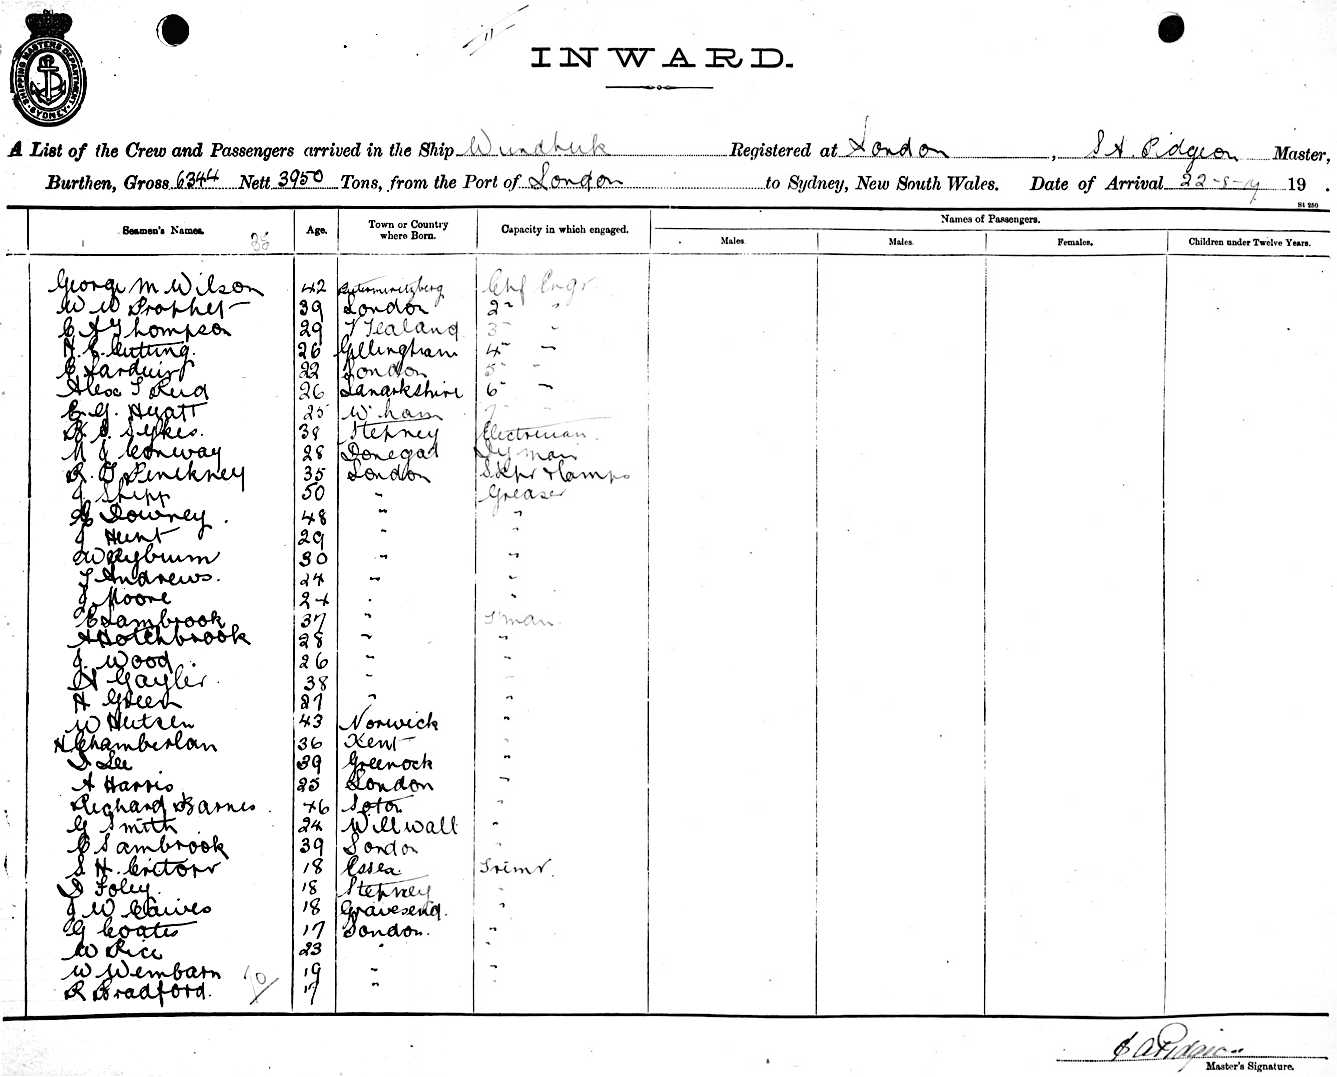 SHIPPING MASTERS DEPARTMENT SYDNEY
11
INWARD.
A List of the Crew and Passengers arrived in the Ship Registered at London, S A. Pidgeon Master,
Burthen, Gross 6344 Nett 3950 Tons, from the Port of London to Sydney, New South Wales. Date of Arrival 22-8-17 19 .
S4 250
Seamen's Names. Age. Town or Country where Born. Capacity in which engaged. Names of Passengers.
Males Males. Females. Children under Twelve Years.
35
George M Wilson 42 Chf Engr
W W Prophet 39 London 2" "
C A Thompson 29 T Zealand 3" "
H. C. Cutting. 26 Gillingham 4" "
C 22 London 5" "
Alex T Reid 26 Lanarkshire 6" "
C G. Hyatt 25 W. ham 7" "
R C Sykes. 38 Stepney Electrician.
M J Conway 28 Donegal
R. T Penckney 35 London Skpr & Lamps
J Shipp 50 " Greaser
C Downey. 48 " "
J Hunt 29 " "
W 30 " "
T Andrews. 24 " "
J. Moore 24 " "
C Sambrook 37 " F'man.
A Hotchbrook 28 " "
J. Wood. 26 " "
H Gayler. 38 " "
H Green 27 " "
W 43 Norwick "
H Chamberlan 36 Kent "
J Lee 39 Greenock "
A Harris 25 London "
Richard Barnes. 46 Soton "
G Smith 24 Millwall "
C Sambrook 39 London "
S H. 18 Essex Trimr.
D Foley. 18 Stepney "
J W 18 Gravesend. "
G Coates 17 London. "
W Rice 23 " "
W Wembarn 19 " "
R Bradford. 17 " "
10
Master's Signature.